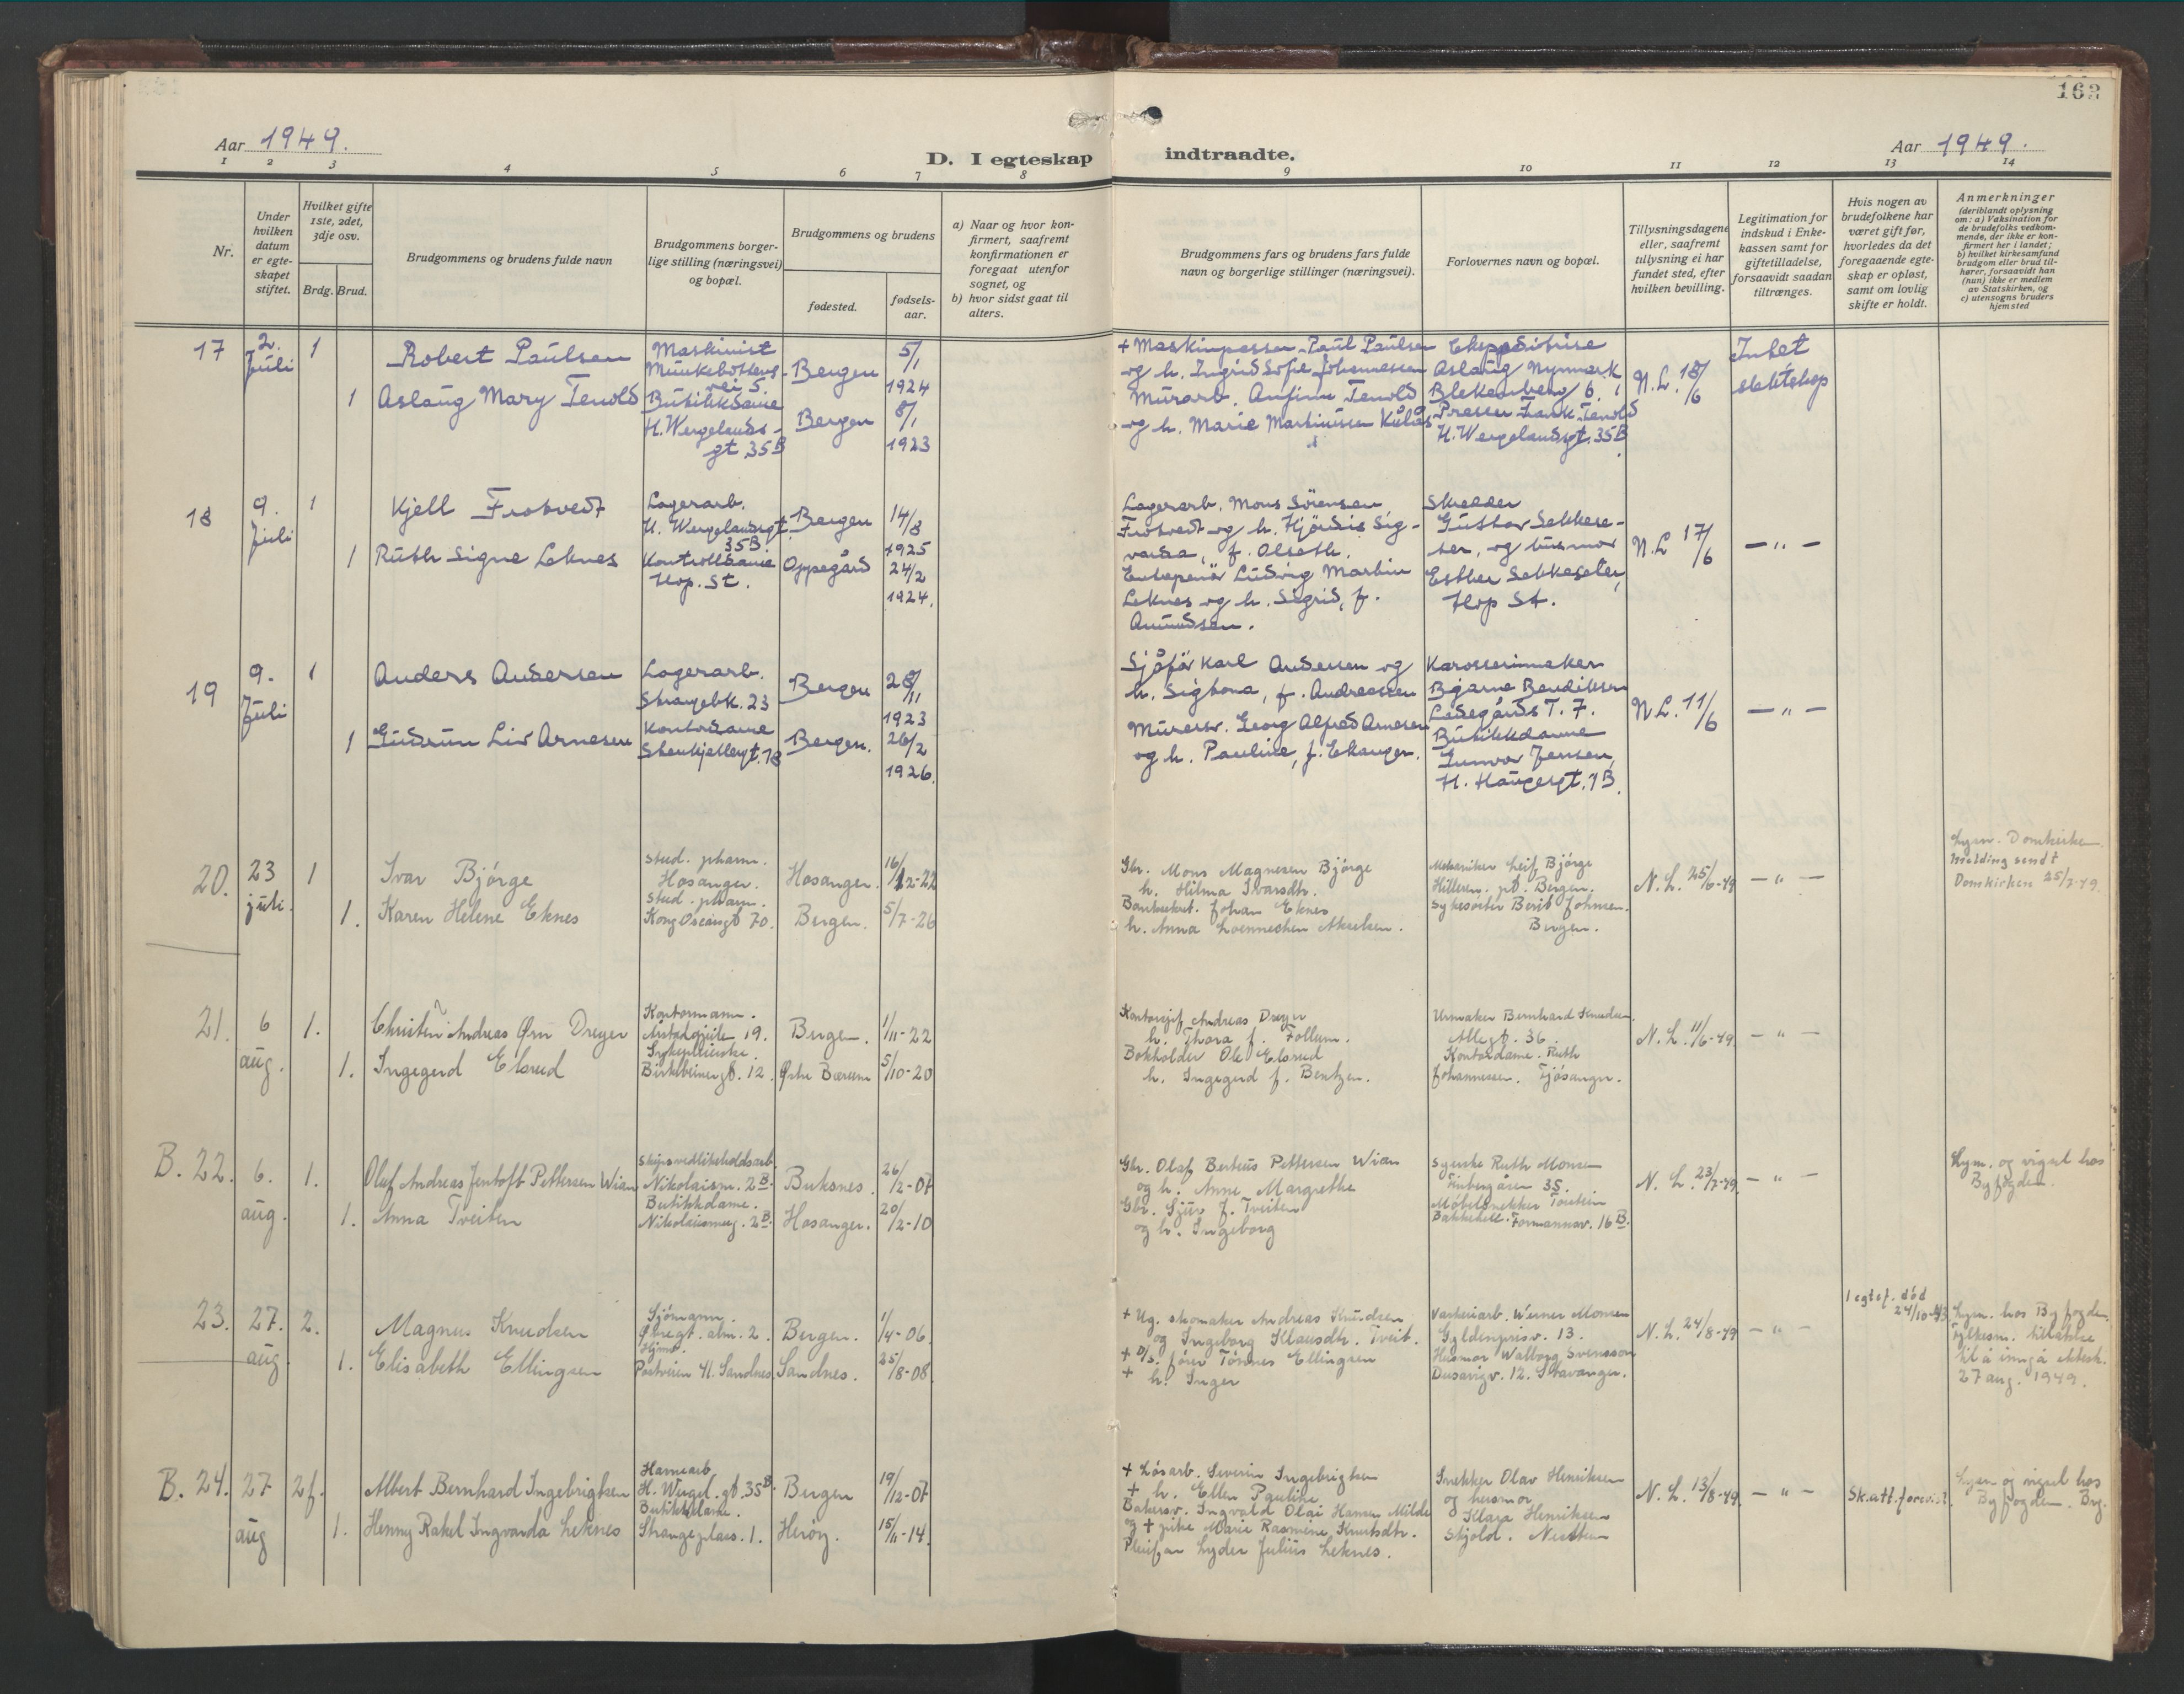 163
Aar 1949.
D. I egteskap indtraadte.
Aar 1949.
1 2 3 4 5 6 7 8 9 10 11 12 13 14
Nr.
Under hvilken datum er egte-skapet stiftet.
Hvilket gifte 1ste, 2det, 3dje osv.
Brdg. Brud.
Brudgommens og brudens fulde navn
Brudgommens borger-lige stilling (næringsvei) og bopæl.
Brudgommens og brudens
fødested.
fødsels-aar.
a) Naar og hvor kon-firmert, saafremt konfirmationen er foregaat utenfor sognet, og
b) hvor sidst gaat til alters.
Brudgommens fars og brudens fars fulde navn og borgerlige stillinger (næringsvei).
Forlovernes navn og bopæl.
Tillysningsdagene eller, saafremt tillysning ei har fundet sted, efter hvilken bevilling.
Legitimation for indskud i Enke-kassen samt for giftetilladelse, forsaavidt saadan tiltrænges.
Hvis nogen av brudefolkene har været gift før, hvorledes da det foregaaende egte-skap er opløst, samt om lovlig skifte er holdt.
Anmerkninger
(deriblandt oplysning om: a) Vaksination for de brudefolks vedkom-mende, der ikke er kon-firmert her i landet; b) hvilket kirkesamfund brudgom eller brud til-hører, forsaavidt han (hun) ikke er medlem av Statskirken, og c) utensogns bruders hjemsted
17
2. Juli
1
Robert Paulsen
Maskinist
Munkebottens-
vei 5
Bergen
5/1
1924
1
Aslaug Mary Tenold
Butikkdame
H. Wergelands-
gt. 35B
Bergen
8/1
1923
+ Maskinpasser Paul Paulsen
og h. Ingrid Sofie Johannessen
Murarb. Anfinn Tenold
og h. Marie Martinussen Kulås
Ekspeditrise
Aslaug Nymark
Presser Frank Tenold
H. Wergelandsgt. 35B
N.L. 18/6
Intet
slektskap
18
9.
Juli
1
Kjell Frotvedt
Lagerarb.
H. Wergelandsgt.
35B
Bergen
14/8
1925
1
Ruth Signe Leknes
Kontrolldame
Hop. St.
Oppegård
24/2
1924.
Lagerarb. Mons Sörensen
Frotvedt og h. Hjördis Sig-
varda, f. Olseth.
Entrepenör Ludvig Martin
Leknes og h. Sigrid, f.
Amundsen.
Skredder
Gustav Sekkese-
ter, og husmor
Esther Sekkeseter,
Hop St.
N.L 17/6
— " —
19
9.
Juli
1
Anders Andersen
Lagerarb.
Strangebk. 23
Bergen
28/11
1923
1
Gudrun Liv Arnesen
Kontordame
Stenkjellergt. 18
Bergen.
26/2
1926.
Sjåför Karl Andersen og
h. Sigtona, f. Andreassen
Murersv. Georg Alfred Arnesen
og h. Pauline, f. Ekanger.
Karosserimaker
Bjarne Bendiksen
Ladegårds T. 7.
Butikkdame
Gunvor Jensen,
H. Haugesgt. 1B.
N.L. 11/6
— " —
20.
23
juli.
1
Ivar Bjørge
stud. pharm.
Hosanger.
Hosanger.
16/12-22
1.
Karen Helene Eknes
stud. pharm.
Kong Oscarsgt 70.
Bergen.
5/7-26
Gbr. Mons Magnesen Bjørge
h. Hilma Ivarsdtr.
Banksekret. Johan Eknes
h. Anna Loennechen Akselsen.
Mekaniker Leif Bjørge
Hilleren. pt. Bergen.
Sykesøster Berit Johnsen.
Bergen.
N.L. 25/6-49
— " —
Lysn. Domkirken.
Melding sendt
Domkirken 25/7-49.
21.
6
aug.
1.
Christen Andreas Ørn Dreyer
Kontormann.
Årstadgjeilen 19.
Bergen.
1/11-22
1.
Ingegerd Elsrud
Sykepleierske.
Birkebeinergt. 12.
Østre Bærum
5/10-20
Kontorsjef Andreas Dreyer
h. Thora f. Follum.
Bokholder Ole Elsrud
h. Ingegerd f. Bentzen.
Urmaker Bernhard Knudsen
Allegt. 36.
Kontordame. Ruth
Johannessen. Fjøsanger.
N.L. 11/6-49.
— " —
B. 22.
6.
aug.
1.
Olaf Andreas Jentoft Pettersen Wian
Skipsvedlikeholdsarb.
Nikolaism. 2B.
Buksnes.
26/2-07
1.
Anna Tveiten
Butikkdame.
Nikolaismug. 2B
Hosanger.
20/2-10
Gbr. Olaf Berteus Pettersen Wian
og h. Anne Margrethe
Gbr. Sjur J. Tveiten
og h. Ingeborg
Syerske Ruth Monsen
35.
Møbelsnekker Torstein
Bakketell. Formannsv. 16B.
N. L. 23/7-49.
— " —
Lysn. og vigsel hos
Byfogden.
23.
27.
aug.
2.
Magnus Knudsen
Sjømann.
Øvregt. alm. 2.
Bergen.
1/4-06.
1.
Elisabeth Ellingsen
Hjemv.
Postveien 41. Sandnes.
Sandnes.
25/8-08.
+ Ug. skomaker Andreas Knudsen
og Ingeborg Klausdtr. Tveit.
+ D/s. fører Tønnes Ellingsen
+ h. Inger
Verkstarb. Werner Monsen
Gyldenprisv. 13.
Husmor Walborg Svensson
Dusavigv. 12. Stavanger.
N.L. 24/8-49
— " —
1 egtef. død
24/10-43
Lysn. hos Byfogden.
Fylkesm. tillatelse
til å inngå ektesk.
27 aug. 1949.
B. 24.
27
aug
2f.
Albert Bernhard Ingebrigtsen
Havnearb
H. Wergel. gt. 35B.
Bergen
19/12-07
1.
Henny Rakel Ingvarda Leknes
Strangeplass. 1.
Herøy.
15/11-14.
+ Løsarb. Severin Ingebrigtsen
+ h. Ellen Pauline
Bakersv. Ingvald Olai Hansen Milde
og + pike Marie Rasmine Knutsdtr.
Pleiefar Lyder Julius Leknes.
Snekker Olav Henriksen
og husmor
Klara Henriksen
Skjold. Nesttun
N.L. 13/8-49.
— " —
Sk.att.forevist.
Lysn og vigsel hos
Byfogden. Brg.